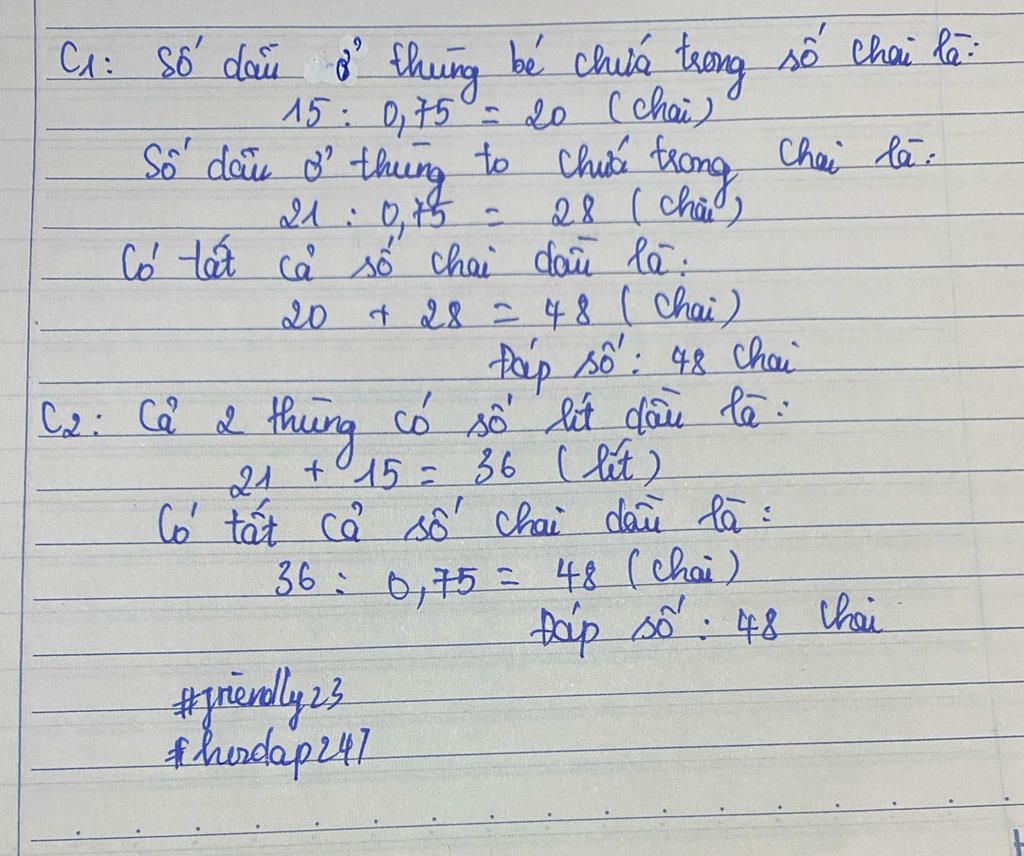 C1: Số dầu ở thùng bé chứa trong số chai là:
15 : 0,75 = 20 (chai)
Số dầu ở thùng to chứa trong chai là:
21 : 0,75 = 28 (chai)
Có tất cả số chai dầu là:
20 + 28 = 48 (chai)
Đáp số: 48 chai
C2: Cả 2 thùng có số lít dầu là:
21 + 15 = 36 (lít)
Có tất cả số chai dầu là:
36 : 0,75 = 48 (chai)
Đáp số: 48 chai
#friendly23
#hoidap247